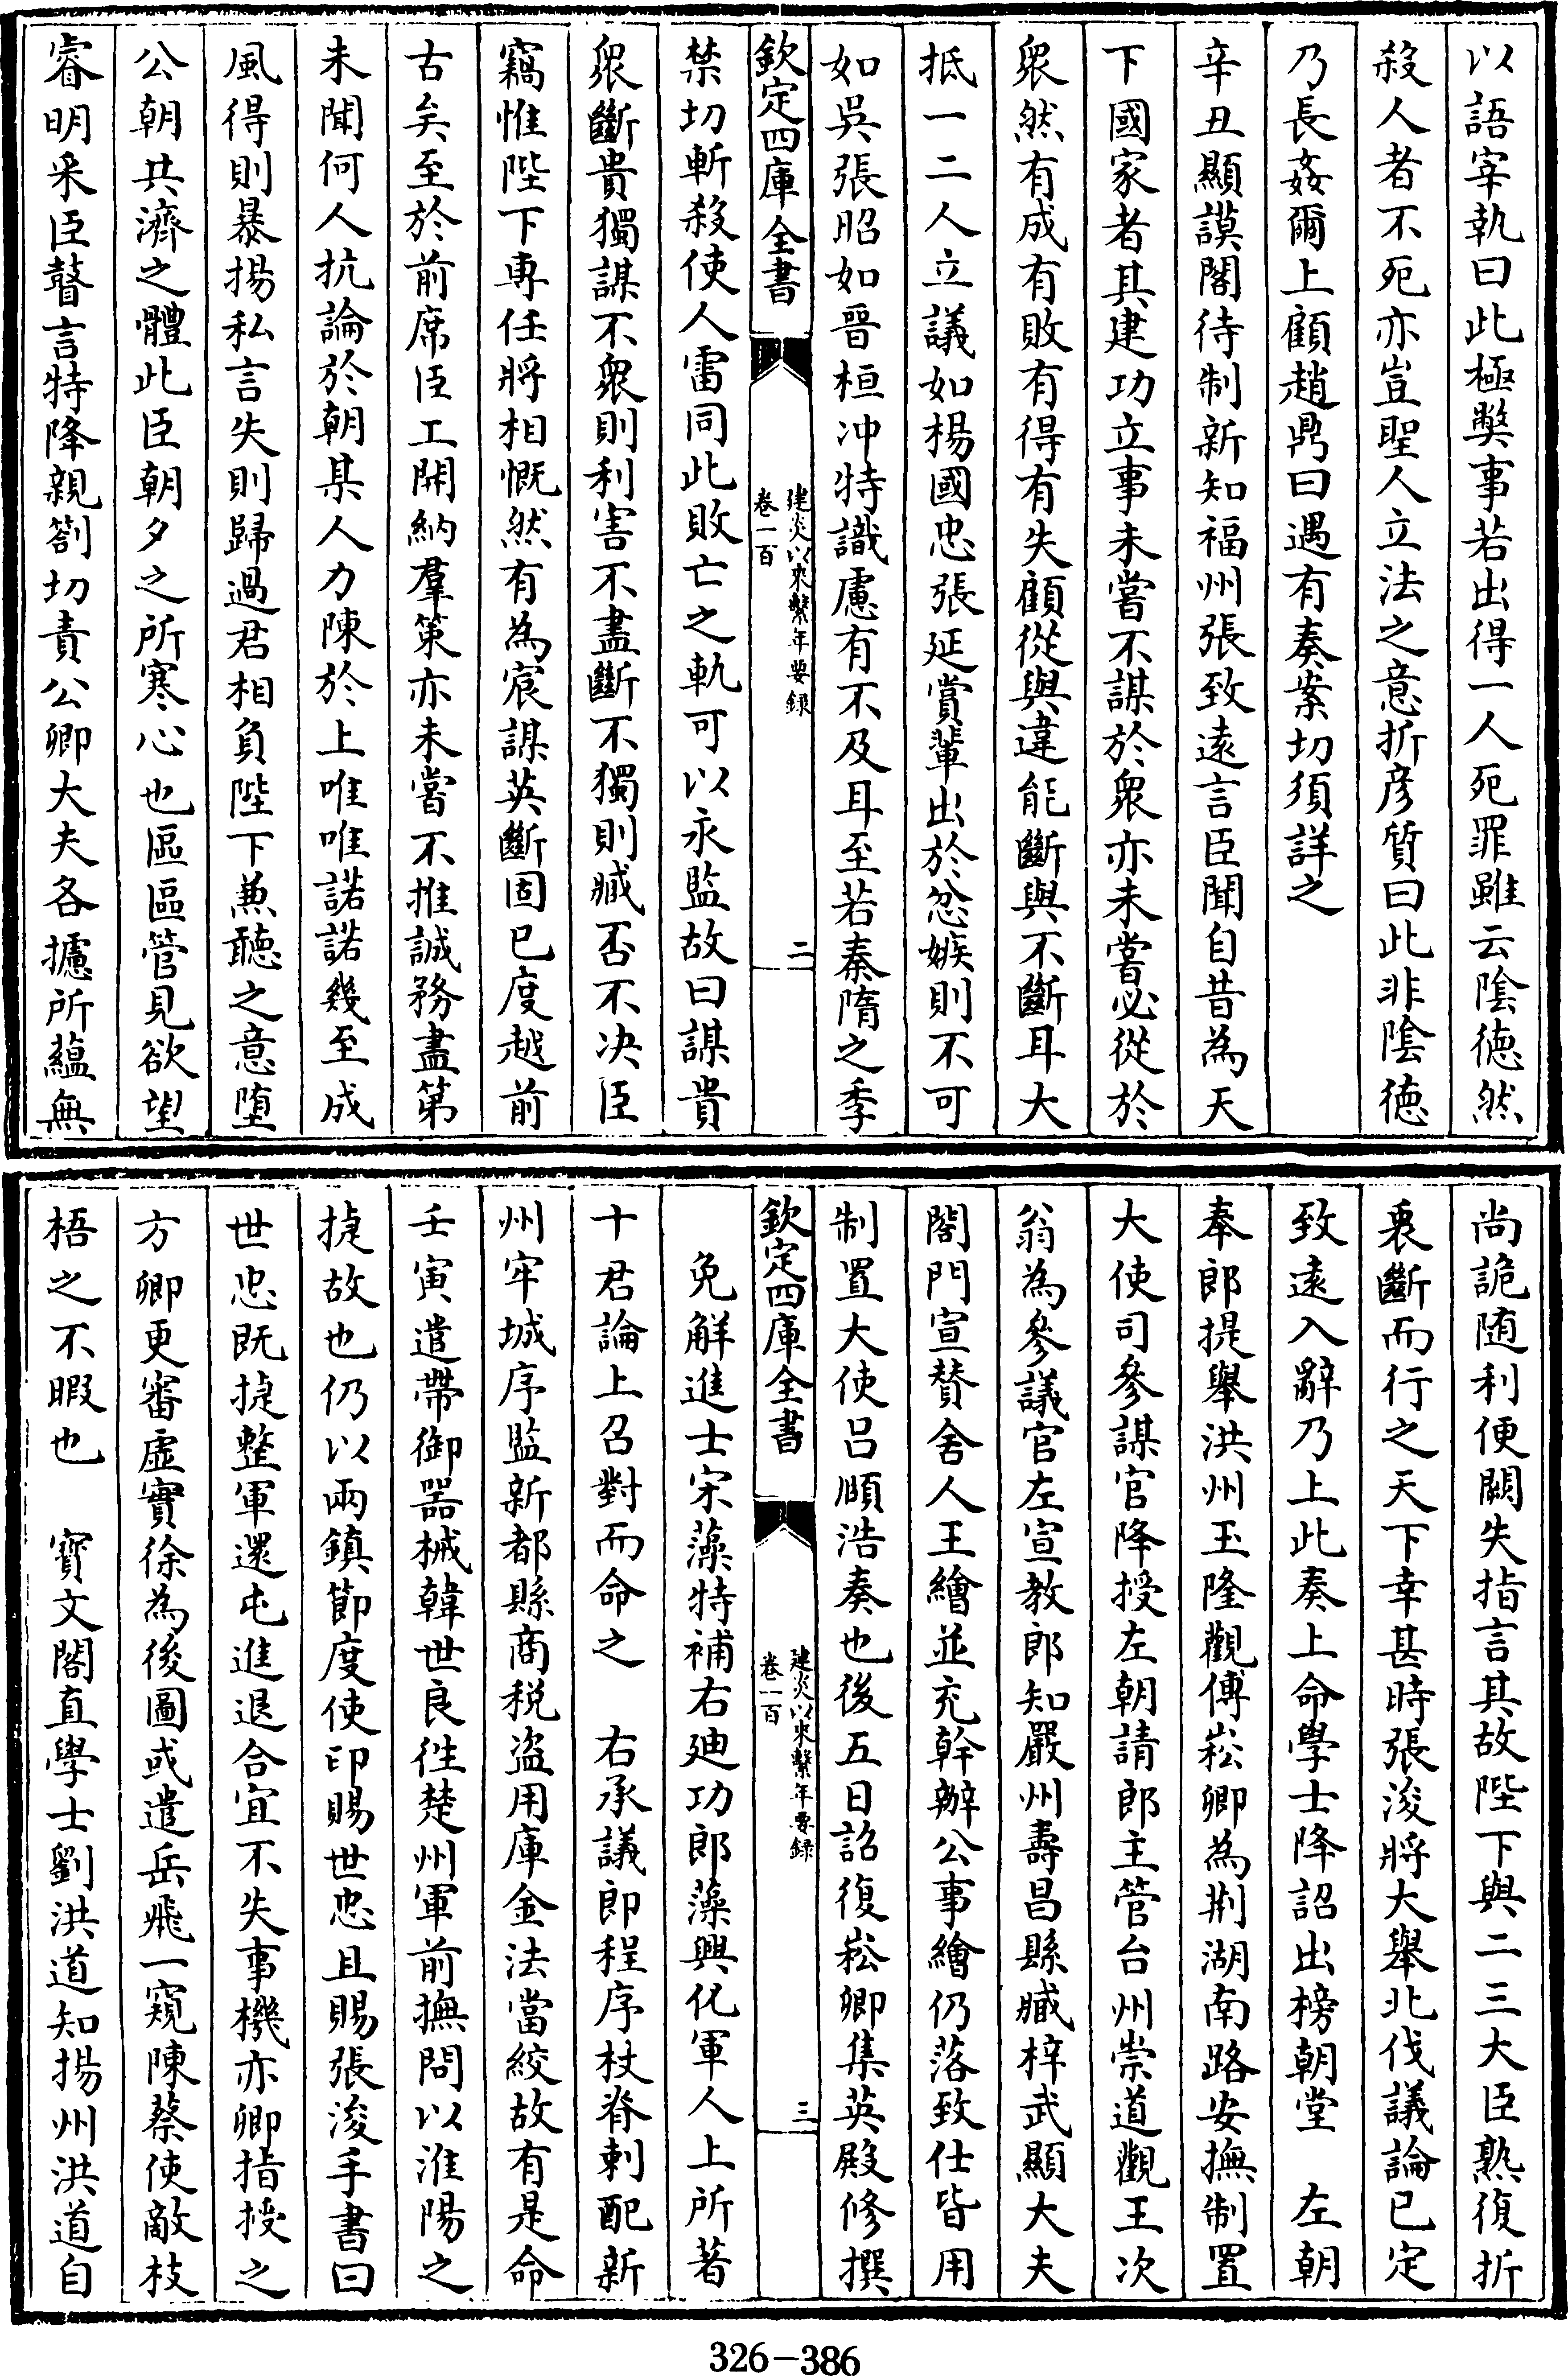 以語宰執曰此極獘事若出得一人死罪雖云隂徳然
殺人者不死亦豈聖人立法之意折彦質曰此非隂徳
乃長姦爾上顧趙鼎曰遇有奏案切須詳之
辛丑顯謨閣待制新知福州張致逺言臣聞自昔為天
下國家者其建功立事未嘗不謀於衆亦未嘗必從於
衆然有成有敗有得有失顧從與違能斷與不斷耳大
抵一二人立議如楊國忠張延賞輩出於忿嫉則不可
如吳張昭如晉桓冲特識慮有不及耳至若秦隋之季
欽定四庫全書
建炎以來繫年要録
卷一百
二
禁切斬殺使人雷同此敗亡之軌可以永監故曰謀貴
衆斷貴獨謀不衆則利害不盡斷不獨則臧否不决臣
竊惟陛下専任將相慨然有為宸謀英斷固已度越前
古矣至於前席臣工開納羣策亦未嘗不推誠務盡第
未聞何人抗論於朝某人力陳於上唯唯諾諾幾至成
風得則暴揚私言失則歸過君相負陛下兼聽之意墮
公朝共濟之體此臣朝夕之所寒心也區區管見欲望
睿明采臣瞽言特降親劄切責公卿大夫各攄所蘊無
尚詭随利便闕失指言其故陛下與二三大臣熟復折
衷斷而行之天下幸甚時張浚將大舉北伐議論已定
致逺入辭乃上此奏上命學士降詔出榜朝堂　左朝
奉郎提舉洪州玉隆觀傅崧卿為荆湖南路安撫制置
大使司參謀官降授左朝請郎主管台州崇道觀王次
翁為參議官左宣教郎知嚴州壽昌縣臧梓武顯大夫
閤門宣贊舍人王繪並充幹辦公事繪仍落致仕皆用
制置大使吕頤浩奏也後五日詔復崧卿集英殿修撰
欽定四庫全書
建炎以來繫年要録
卷一百
三
免解進士宋藻特補右廸功郎藻興化軍人上所著
十君論上召對而命之　右承議郎程序杖脊刺配新
州牢城序監新都縣商税盗用庫金法當絞故有是命
壬寅遣帶御器械韓世良徃楚州軍前撫問以淮陽之
捷故也仍以兩鎮節度使印賜世忠且賜張浚手書曰
世忠既捷整軍還屯進退合宜不失事機亦卿指授之
方卿更審虚實徐為後圖或遣岳飛一窺陳蔡使敵枝
梧之不暇也　寳文閣直學士劉洪道知揚州洪道自
326-386